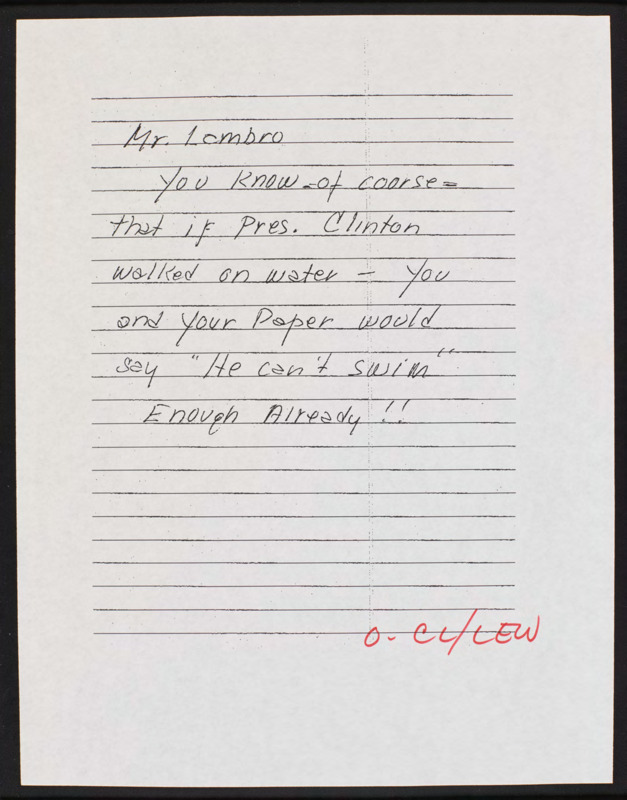 Mr. Lambro
You know -of coorse-
that if Pres. Clinton
walked on water - you
and your Paper would
say "He can't swim"
Enough Already!!
O- CL/LEW